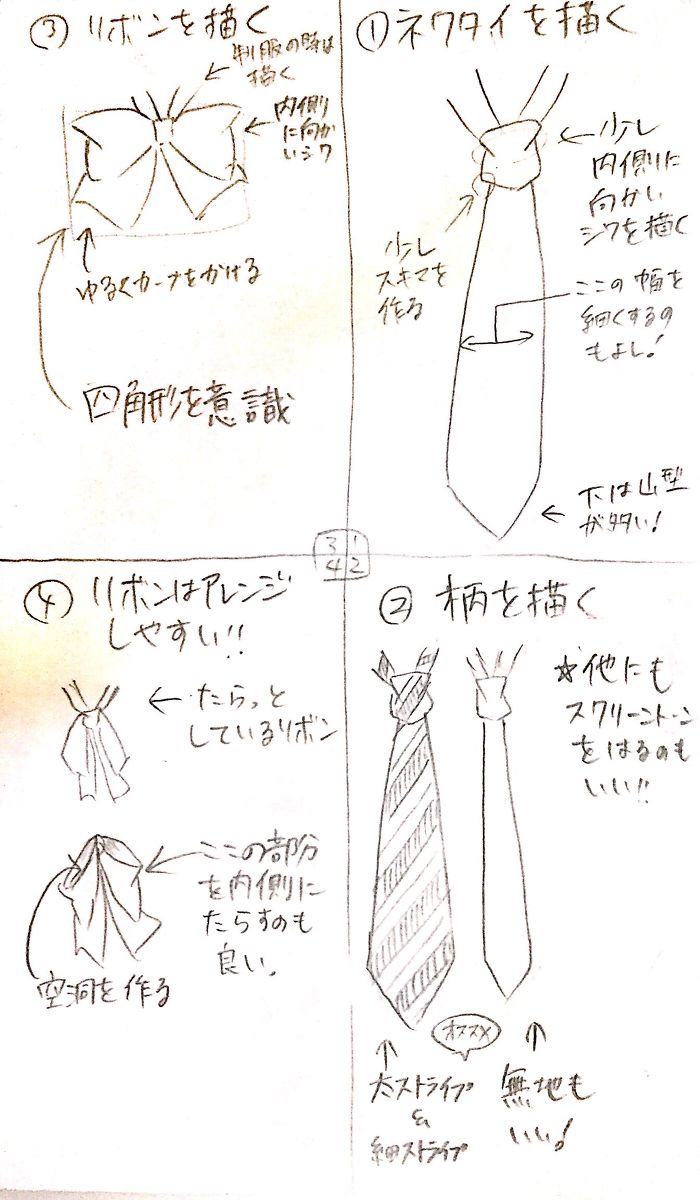 ①ネクタイを描く
少し
内側に
向かい
シワを描く
少し
スキマを
作る
ここの幅を
細くするの
もよし!
下は山型
が多い!
②柄を描く
☆他にも
スクリーントーン
をはるのも
いい!!
オススメ
太ストライプ
&
細ストライプ
無地も
いい!
③リボンを描く
制服の時は
描く
内側
に向か
いシワ
ゆるくカーブをかける
四角形を意識
3 1
4 2
④リボンはアレンジ
しやすい!!
たらっと
しているリボン
ここの部分
を内側に
たらすのも
良い。
空洞を作る